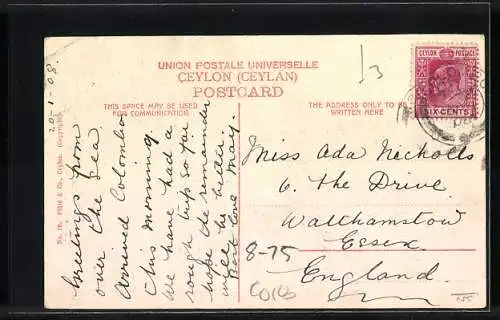 UNION POSTALE UNIVERSELLE
CEYLON (CEYLAN)
POSTCARD
THIS SPACE MAY BE USED
FOR COMMUNICATION
THE ADDRESS ONLY TO BE
WRITTEN HERE
CEYLON POSTAGE
SIX CENTS
13
20-1-08.
Greetings from
over the Sea.
Arrived Colombo
this morning.
We have had a
rough trip so far
hope the remainder
will be better.
Best love May.
Miss Ada Nicholls
6. The Drive.
Walthamstow
Essex.
England.
8-75
Colis